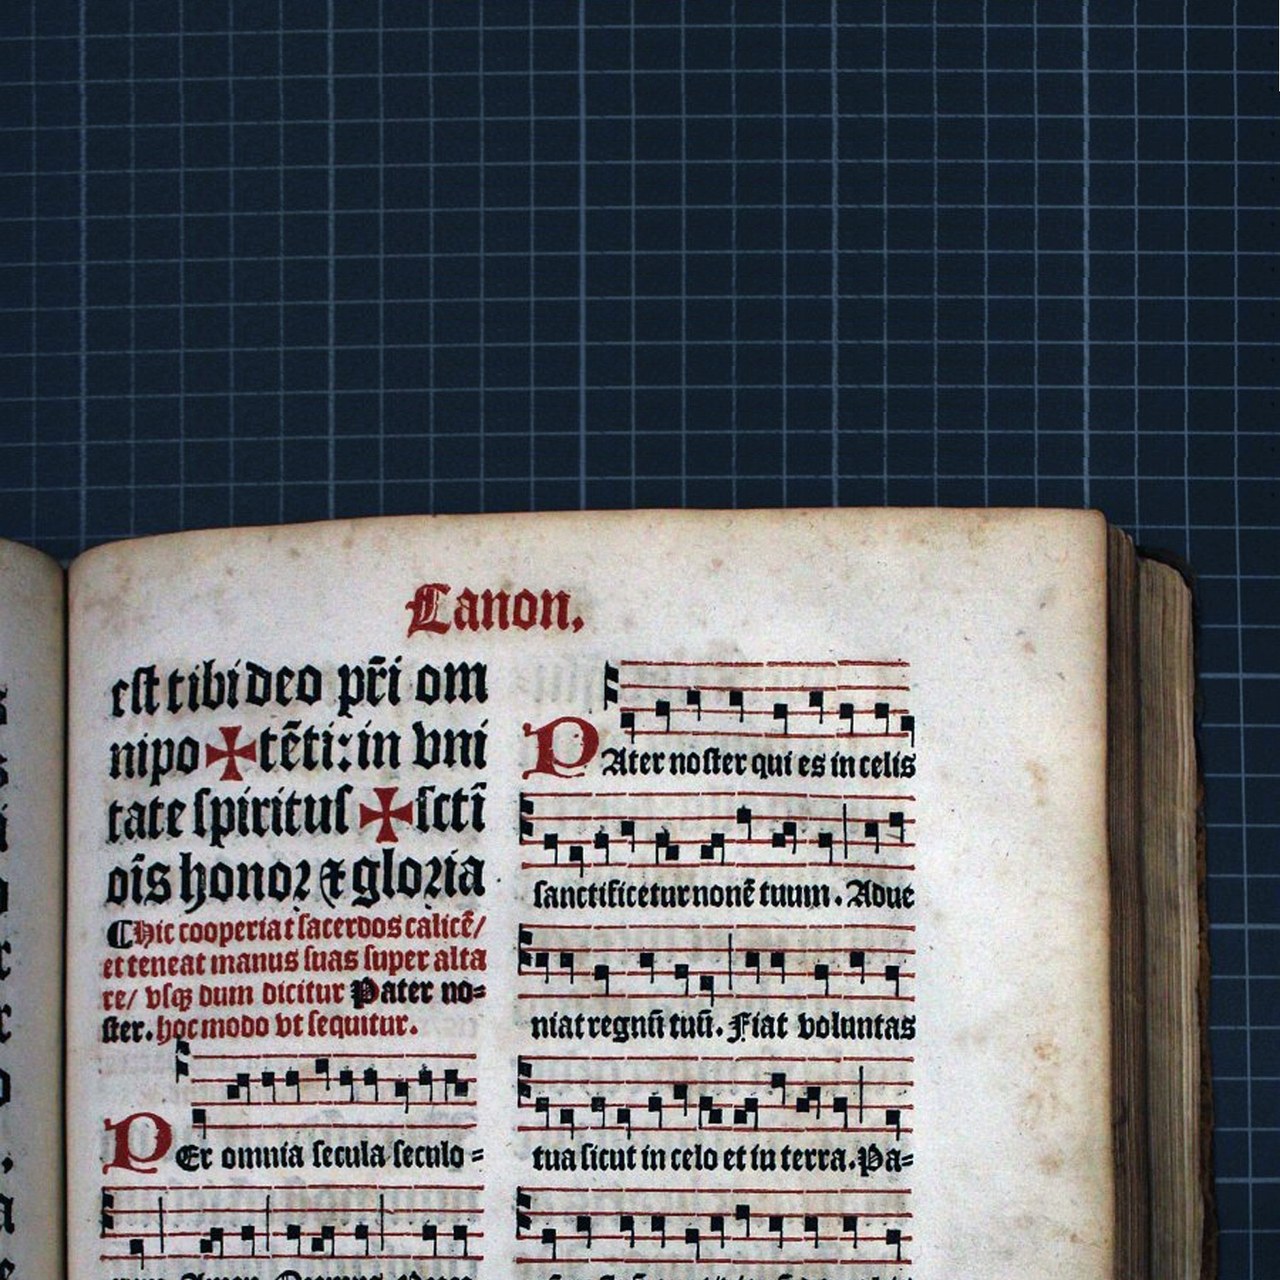 Canon.
est tibi deo pr̄i om
nipo✠tēti: in vni
tate spiritus ✠ sctī
oīs honoꝛ ⁊ gloꝛia
¶ Hic cooperiat sacerdos calicē/
et teneat manus suas super alta
re/ vsqꝫ dum dicitur Pater no=
ster. hoc modo vt sequitur.
PEr omnia secula seculo=
PAter noster qui es in celis
sanctificetur nomē tuum. Adue
niat regnū tuū. Fiat voluntas
tua sicut in celo et in terra. Pa=